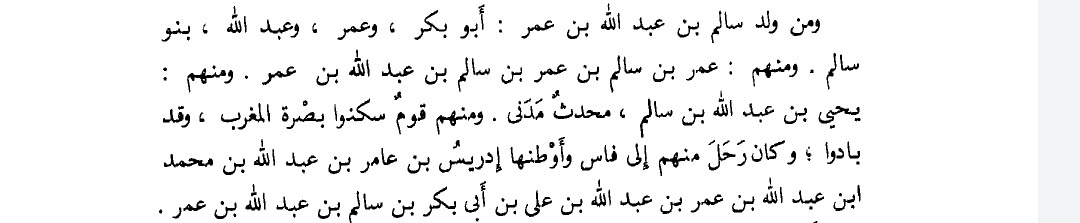 ومن ولد سالم بن عبد الله بن عمر : أَبو بكر ، وعمر ، وعبد الله ، بنو
سالم . ومنهم : عمر بن سالم بن عمر بن سالم بن عبد الله بن عمر . ومنهم :
يحيى بن عبد الله بن سالم ، محدثٌ مَدَنى . ومنهم قومٌ سكنوا بصْرة المغرب ، وقد
بادوا ؛ وكان رَحَلَ منهم إِلى فاس وأَوْطنها إِدريسُ بن عامر بن عبد الله بن محمد
ابن عبد الله بن عمر بن عبد الله بن على بن أَبى بكر بن سالم بن عبد الله بن عمر .